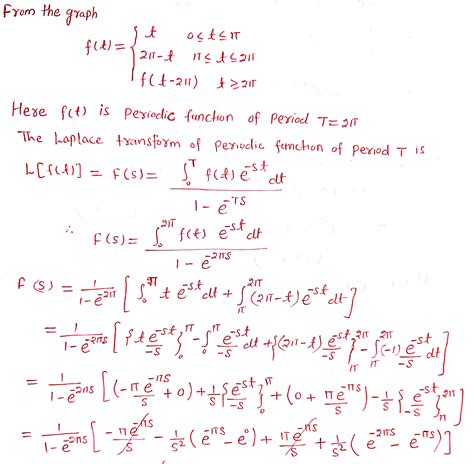 From the graph
f(t) = { t 0 ≤ t ≤ π
2π-t π ≤ t ≤ 2π
f(t-2π) t ≥ 2π
Here f(t) is periodic function of period T = 2π
The Laplace transform of periodic function of period T is
L[f(t)] = F(s) = ∫₀ᵀ f(t) e^{-st} dt / 1 - e^{-TS}
∴ F(s) = ∫₀^{2π} f(t) e^{-st} dt / 1 - e^{-2πs}
F(s) = 1/(1-e^{-2π}) [ ∫₀^{π} t e^{-st} dt + ∫_π^{2π} (2π-t) e^{-st} dt ]
= 1/(1-e^{-2πs}) [ {t e^{-st}/-s}₀^π - ∫₀^π e^{-st}/-s dt + {(2π-t) e^{-st}/-s}_π^{2π} - ∫_π^{2π} (-1) e^{-st}/-s dt ]
= 1/(1-e^{-2πs}) [ (-π e^{-πs}/s + 0) + 1/s {e^{-st}/-s}₀^π + (0 + π e^{-πs}/s) - 1/s {e^{-st}/-s}_π^{2π} ]
= 1/(1-e^{-2πs}) [ -π e^{-πs}/s - 1/s² (e^{-πs} - e⁰) + π e^{-πs}/s + 1/s² (e^{-2πs} - e^{-πs}) ]